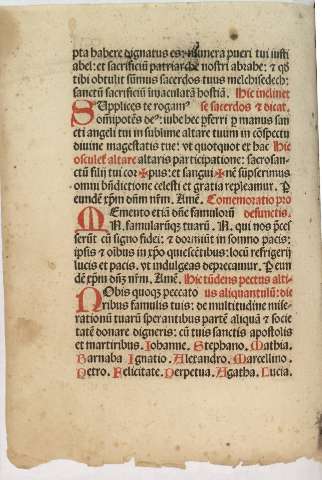 pta habere dignatus es: munera pueri tui iusti
abel: et sacrificiū patriarche nostri abrahe: ⁊ qd̄
tibi obtulit sūmus sacerdos tuus melchisedech:
sanctū sacrificiū īmaculatā hostiā. Hic inclinet
Supplices te rogam⁹ se sacerdos ⁊ dicat.
om̄ipotēs de⁹: iube hec ꝑferri ꝑ manus san
cti angeli tui in sublime altare tuum in cōspectu
diuine magestatis tue: vt quotquot ex hac Hic
osculet̄ altare altaris participatione: sacrosan-
ctū filij tui cor✠pus: et sangui✠nē sūpserimus
omni bn̄dictione celesti et gratia repleamur. P
eundē xp̄m dn̄m nr̄m. Amē. Comemoratio pro
Memento etiā dn̄e famulorū defunctis.
N. famularūqꝫ tuarū. N. qui nos p̄ces
serūt cū signo fidei: ⁊ dormiūt in somno pacis:
ip̄sis ⁊ oībus in xp̄o quiescētibus: locū refrigerij
lucis et pacis. vt indulgeas deprecamur. P eun
dē xp̄m dn̄m nr̄m. Amē. Hic tūdens pectus alti-
Nobis quoqꝫ peccato us aliquantulū: di⁠c
ribus famulis tuis: de multitudine mise-
rationū tuarū sperantibus partē aliquā ⁊ socie
tatē donare digneris: cū tuis sanctis apostolis
et martiribus. Iohanne. Stephano. Mathia.
Barnaba Ignatio. Alexandro. Marcellino.
Petro. Felicitate. Perpetua. Agatha. Lucia.